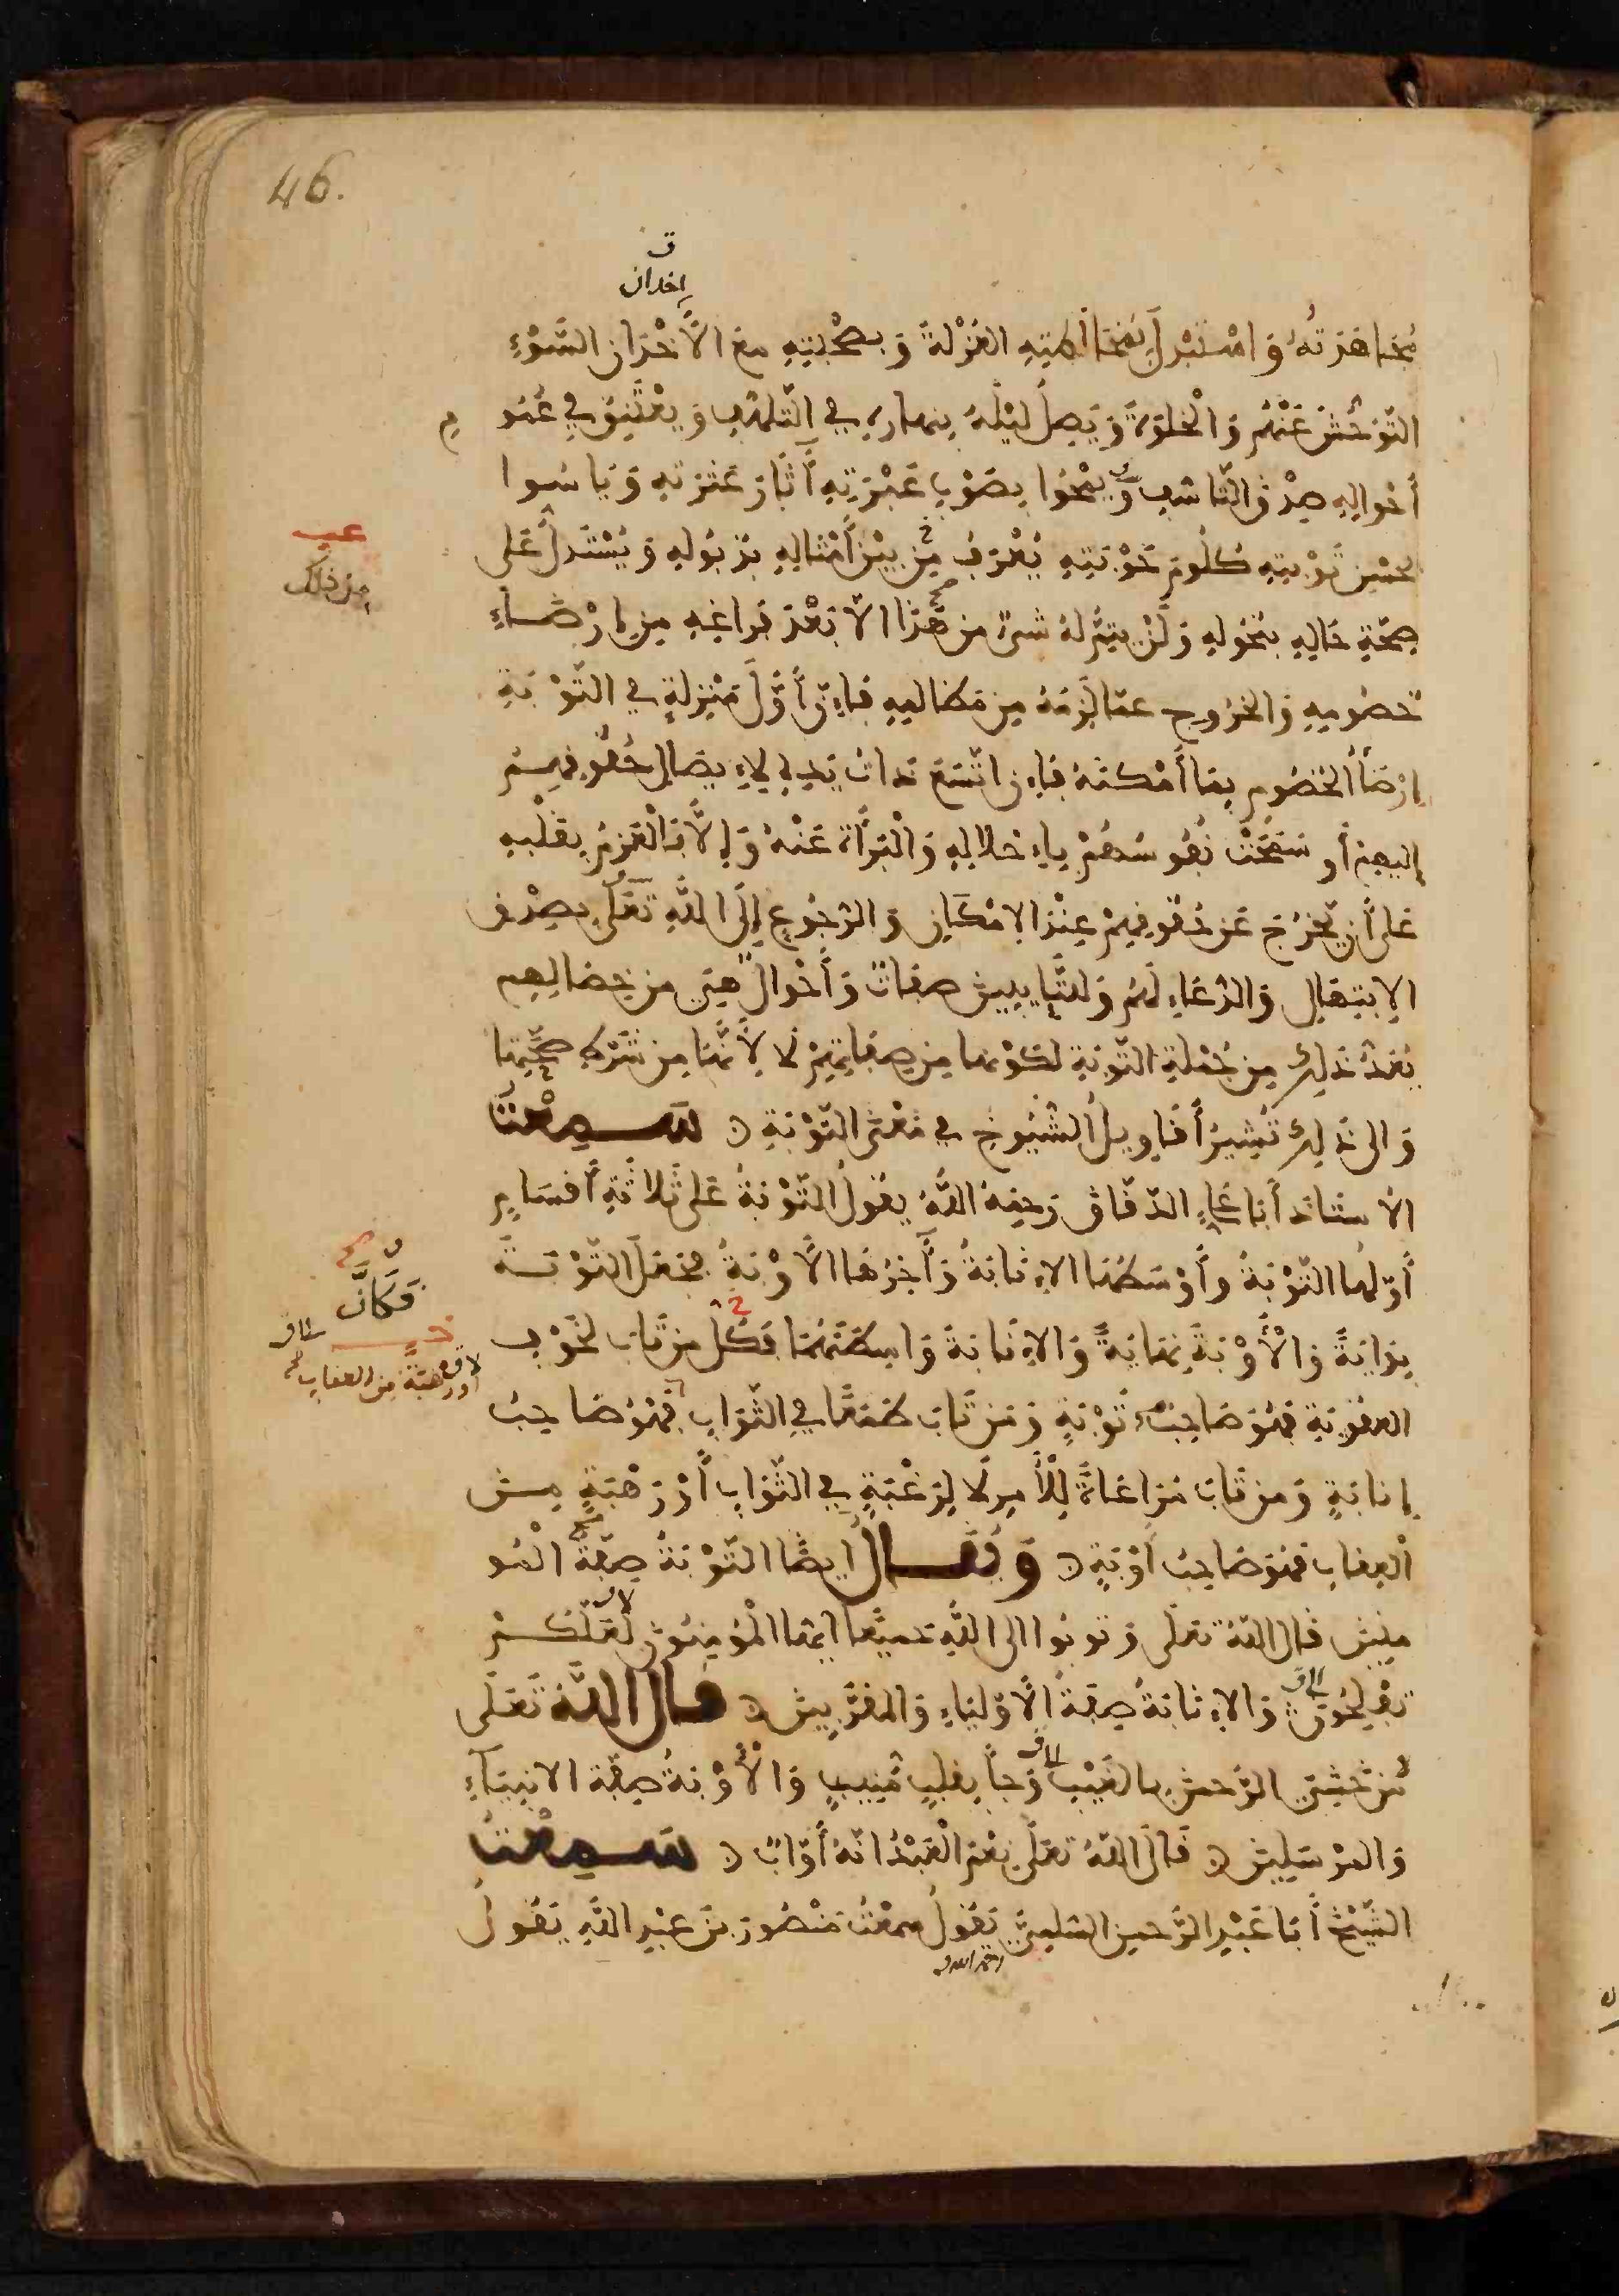 46.
ق
إخدان
مُجَاهَدَتَهُ وَاسْتَبْدَلَ بِمُخَالَطَتِهِ العُزْلَةَ وَبِصُحْبَتِهِ مَعَ الأَخْدَانِ السَّوْءِ
التَّوَحُّشَ عَنْهُم وَالْخَلْوَةَ وَيَصِلُ لَيْلَهُ بِنهاره في التَّلَهُّفِ وَيَعْتَنِقُ في عُمُو م
أَحْوالِهِ صِدْقَ التَّاسُّفِ وَيَمْحُوا بِصَوْبِ عَبْرَتِهِ آثَارَ عَثْرَتِهِ وَيَاسُوا
بِحُسْنِ تَوْبَتِهِ كُلُومَ حَوْبَتِهِ يُعْرَفُ مِنْ بَيْنِ أَمْثَالِهِ بِذُبُولِهِ وَيُسْتَدَلُّ عَلَى
عب
من ذلك
صِحَّةِ حَالِهِ بِنُحُولِهِ وَلَنْ يَتِمَّ لَهُ شيءٌ من هَذَا الا بَعْدَ فَراغِهِ مِن إِرْضَاءِ
خُصُومِهِ وَالخُرُوجِ عَمَّا لَزِمَهُ مِن مَظَالمِهِ فَإِنَّ أَوَّلَ مَنْزِلَةٍ في التَّوْبَةِ
إِرْضَأُ الخُصُومِ بِمَا أَمْكَنَهُ فَإِنِ اتَّسَعَ ذَاتُ يَدِهِ لِإِيصَالِ حُقُوقِهِمْ
إليهِمْ أو سَمَحَتْ نُفُوسُهُمْ بِإِحْلَالِهِ وَالْبَرَاءَةِ عَنْهُ وَإِلَّا فَالْعَزْمُ بِقَلْبِهِ
عَلَى أَن يَخْرُجَ عَن حُقُوقِهِمْ عِنْدَ الإِمْكَانِ وَالرُّجُوعِ إِلَى اللَّهِ تَعَلَى بِصِدْقِ
الِابْتِهَالِ وَالدُّعَاءِ لَهُمْ وَلِلتَّايبِينَ صِفَاتٌ وَأَحْوالٌ هِيَ من خِصَالِهِم
يُعَدُّ ذَلِكَ مِن جُمْلَةِ التَّوْبَةِ لكَوْنها مِن صِفَاتِهِمْ لَا لِأَنَّهَا مِن شَرْطِ صِحَّتِهَا
وَالى ذَلِكَ تُشِيرُ أَقَاوِيلُ الشُّيُوخِ في مَعْنَى التَّوْبَةِ ۞ سَمِعْتُ
الأستاذ أبَا عَلِيٍّ الدَّقَّاق رَحِمَهُ اللَّهُ يقُولُ التَّوْبَةُ عَلى ثَلاثَةِ أَقسَامٍ
أَوّلُها التَّوْبَةُ وأَوْسَطُهَا الإِنَابَةُ وَآخِرُهَا الأَوْبَةُ فجَعَلَ التَّوْبَةَ
بِدَايَةً وَالْأَوْبَةَ نِهَايَةً وَالإِنَابَةَ وَاسِطَتَهُمَا فَكُلُّ مَن تَابَ لِخَوْفِ
فَكَانَ
أورهبة من العقاب
العقُوبَةِ فَهُوَ صَاحِبُ تَوْبَةٍ وَمَن تَابَ طَمَعًا في الثَّوَابِ فَهُوَ صَاحِبُ
إِنابَةٍ وَمَن تَابَ مُرَاعَاةً لِلْأَمرِ لَا لِرَغْبَةٍ في الثَّوَابِ أَوْ رَهْبَةٍ مِنَ
الْعِقَابِ فَهُوَ صَاحِبُ أَوْبَةٍ ۞ وَيُقَالُ أيضًا التَّوْبَةُ صِفَةُ الْمُو
مِنِينَ قَال اللَّهُ تَعَلَى وَتُوبُوا الى اللَّهِ جَمِيعًا أَيُّهَا الْمُؤمِنُونَ لَعَلَّكُمْ
تُفْلِحُونَ وَالإِنَابَةُ صِفَةُ الأَوْلِيَاءِ وَالمقَرَّبِينَ ۞ قَال اللَّهُ تَعَلَى
مَنْ خَشِيَ الرَّحمنَ بالغَيْبِ وَجَاءَ بِقَلْبٍ مُنِيبٍ وَالْأَوْبَةُ صِفَةُ الانبِيَاءِ
وَالمُرْسَلِينَ ۞ قَالَ اللَّهُ تَعَلَى نِعْمَ الْعَبْدُ انَّهُ أَوَّابٌ ۞ سَمِعْتُ
الشَّيْخَ أَبَا عَبْدِ الرَّحمنِ السُّلَمِيَّ يَقُولُ سَمِعْتُ مَنْصُورَ بْنَ عَبْدِ اللَّهِ يَقُولُ
رحمه الله